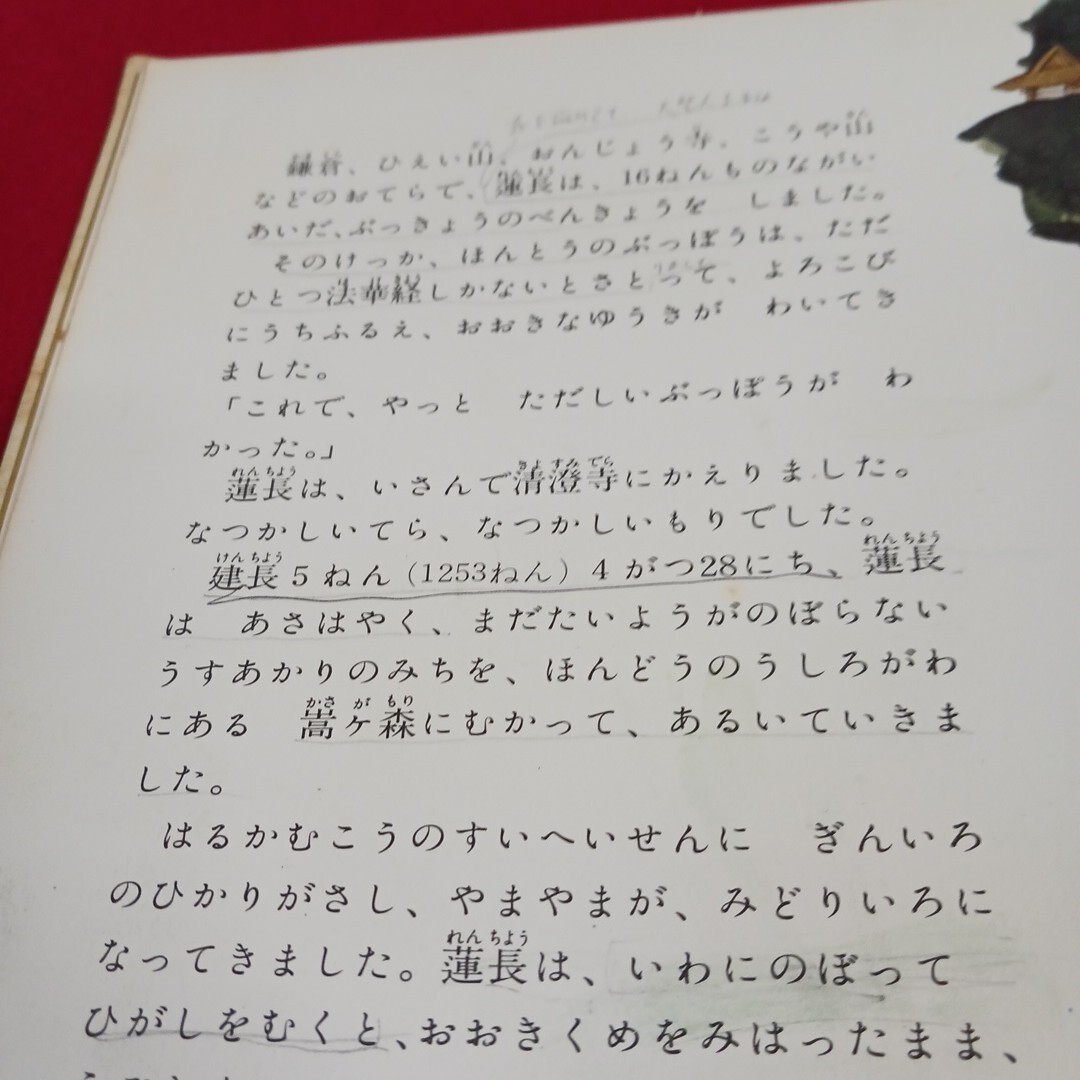 鎌倉、ひえい山、おんじょう寺、こうや山
などのおてらで、蓮長は、16ねんものながい
あいだ、ぶっきょうのべんきょうを　しました。
そのけっか、ほんとうのぶっぽうは、ただ
ひとつ法華経しかないとさとって、よろこび
にうちふるえ、おおきなゆうきが　わいてき
ました。
「これで、やっと　ただしいぶっぽうが　わ
かった。」
れんちよう　きよすみでら
蓮長は、いさんで清澄寺にかえりました。
なつかしいてら、なつかしいもりでした。
けんちよう　れんちよう
建長5ねん（1253ねん）4がつ28にち、蓮長
は　あさはやく、まだたいようがのぼらない
うすあかりのみちを、ほんどうのうしろがわ
かさがもり
にある　嵩ヶ森にむかって、あるいていきま
した。
はるかむこうのすいへいせんに　ぎんいろ
のひかりがさし、やまやまが、みどりいろに
れんちよう
なってきました。蓮長は、いわにのぼって
ひがしをむくと、おおきくめをみはったまま、